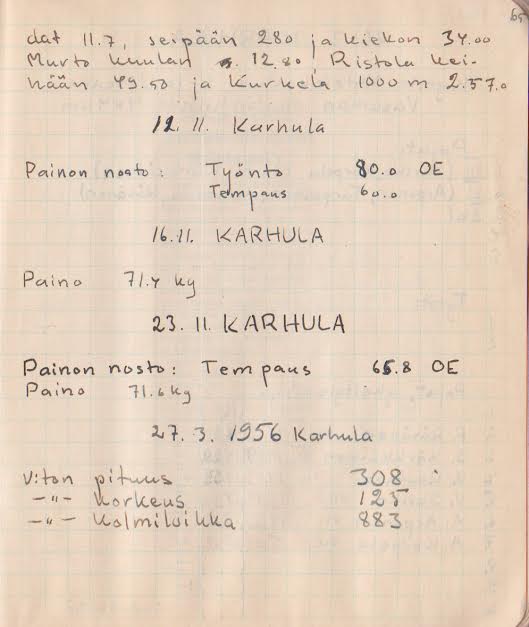 65
dat 11.7, seipään 280 ja kiekon 34.00
Murto kuulan 12.80, Ristola kei-
hään 49.50 ja Kurkela 1000 m 2.57.0
12. 11. Karhula
Painon nosto: Työnto 80.0 OE
Tempaus 60.0
16.11. KARHULA
Paino 71.4 kg
23. 11. KARHULA
Painon nosto: Tempaus 65.8 OE
Paino 71.6 kg
27. 3. 1956 Karhula
V:ton pituus 308
-"- Korkeus 125
-"- Kolmiloikka 883